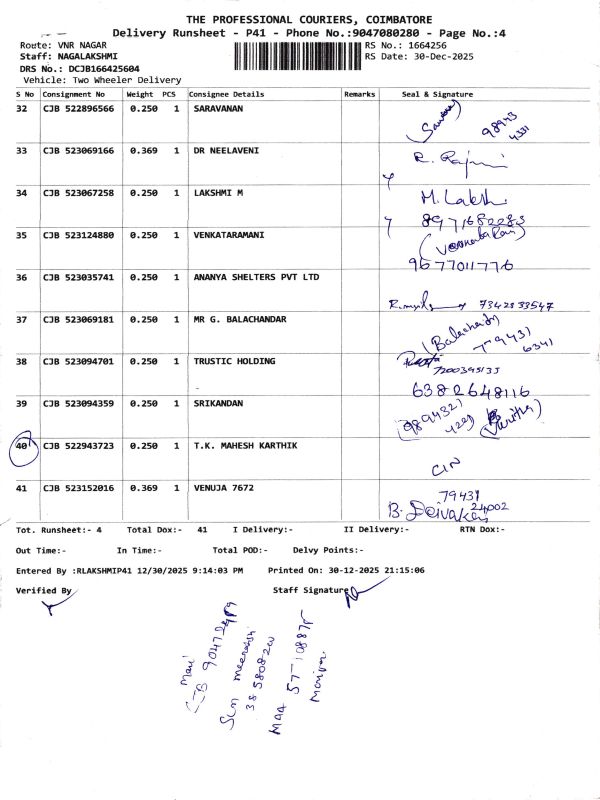 THE PROFESSIONAL COURIERS, COIMBATORE
Delivery Runsheet - P41 - Phone No.:9047080280 - Page No.:4
Route: VNR NAGAR
RS No.: 1664256
Staff: NAGALAKSHMI
RS Date: 30-Dec-2025
DRS No.: DCJB166425604
Vehicle: Two Wheeler Delivery
S No Consignment No Weight PCS Consignee Details Remarks Seal & Signature
32 CJB 522896566 0.250 1 SARAVANAN
98943
4331
33 CJB 523069166 0.369 1 DR NEELAVENI
34 CJB 523067258 0.250 1 LAKSHMI M
M. Laksh
35 CJB 523124880 0.250 1 VENKATARAMANI
9677011776
36 CJB 523035741 0.250 1 ANANYA SHELTERS PVT LTD
7342833547
37 CJB 523069181 0.250 1 MR G. BALACHANDAR
79431
6341
38 CJB 523094701 0.250 1 TRUSTIC HOLDING
-
6382648116
39 CJB 523094359 0.250 1 SRIKANDAN
40 CJB 522943723 0.250 1 T.K. MAHESH KARTHIK
CIN
41 CJB 523152016 0.369 1 VENUJA 7672
79431
24002
B. Deivakai
Tot. Runsheet:- 4 Total Dox:- 41 I Delivery:- II Delivery:- RTN Dox:-
Out Time:- In Time:- Total POD:- Delvy Points:-
Entered By :RLAKSHMIP41 12/30/2025 9:14:03 PM Printed On: 30-12-2025 21:15:06
Verified By Staff Signature